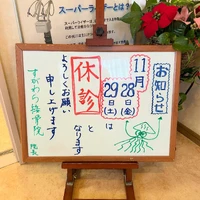 スーパーライザーとは？
お知らせ
11月
28日(金)
29日(土)
は
休診
と
なります
よろしくお願い
申し上げます。
すがわら接骨院
院長